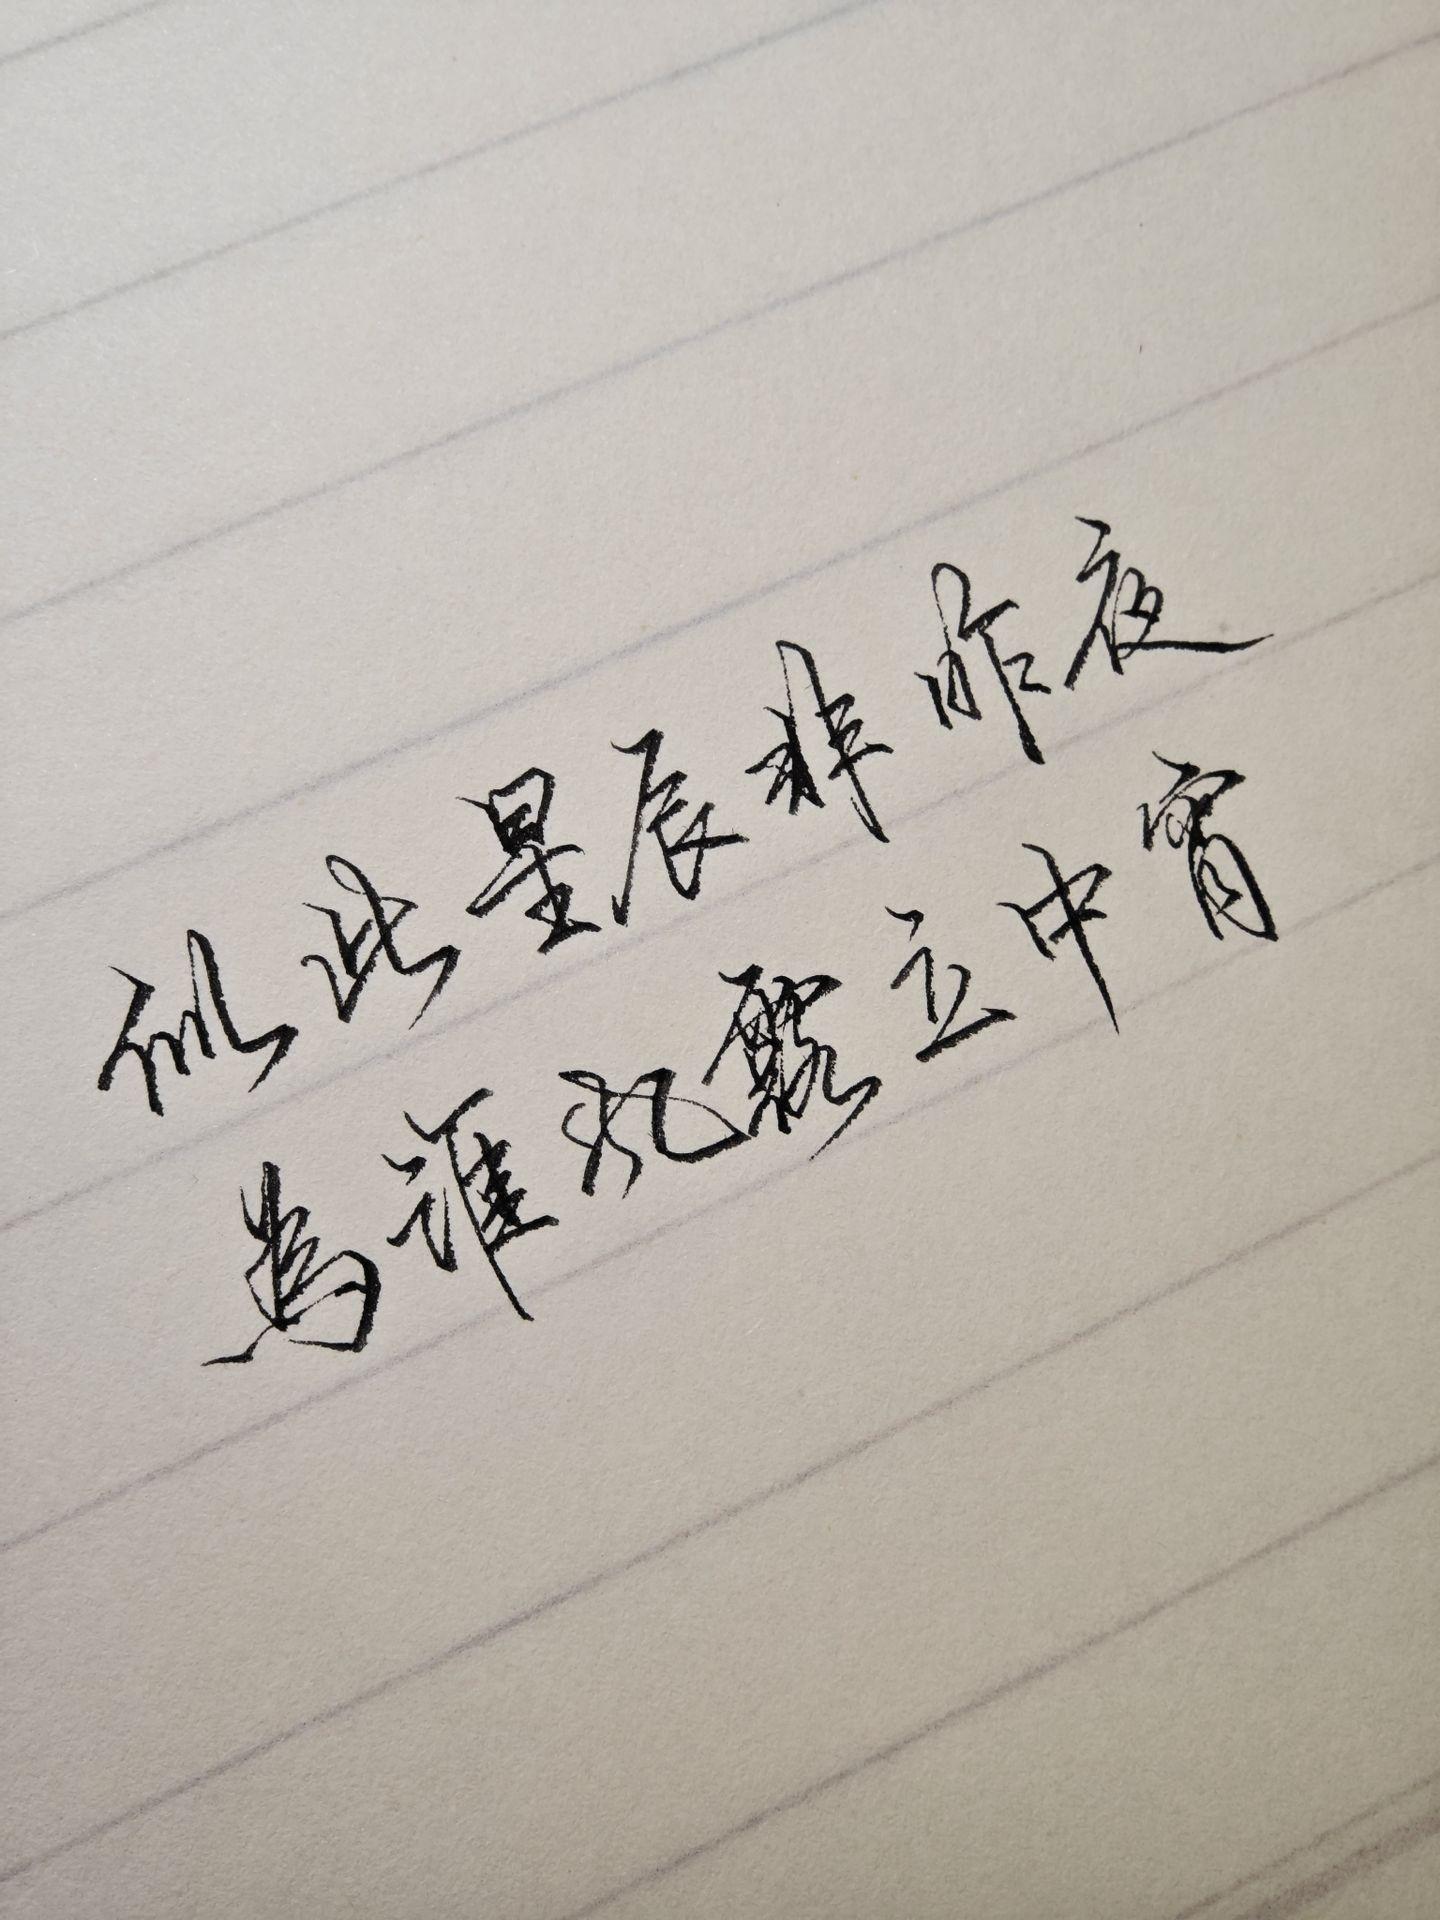 似此星辰非昨夜
為谁风露立中宵